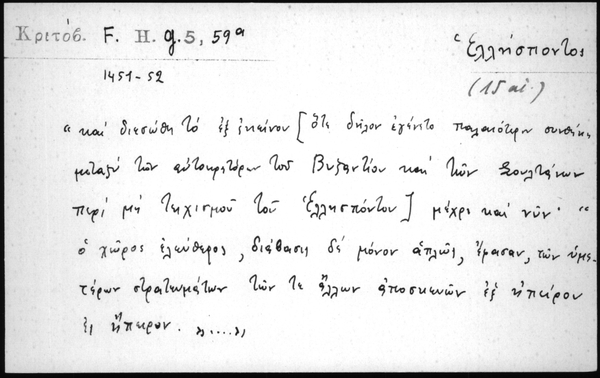 Κριτόβ. F. H. g. 5, 59ᵃ
Ἑλλήσποντος
1451-52
(15 αἰ.)
“καὶ διεσώθη τό ἐξ ἐκείνου [ὅτε δῆλον ἐγένετο παλαιότερον συνθήκη
μεταξὺ τῶν αὐτοκρατόρων τοῦ Βυζαντίου καὶ τῶν Σουλτάνων
περὶ μὴ τειχισμοῦ τοῦ Ἑλλησπόντου] μέχρι καὶ νῦν· “
ὁ χῶρος ἐλεύθερος, διάβασις δέ μόνον ἁπλῶς, ἔφασαν, τῶν ὑμε-
τέρων στρατευμάτων τῶν τε ἄλλων ἀποσκευῶν ἐξ ἠπείρου
ἐς ἤπειρον. »....»